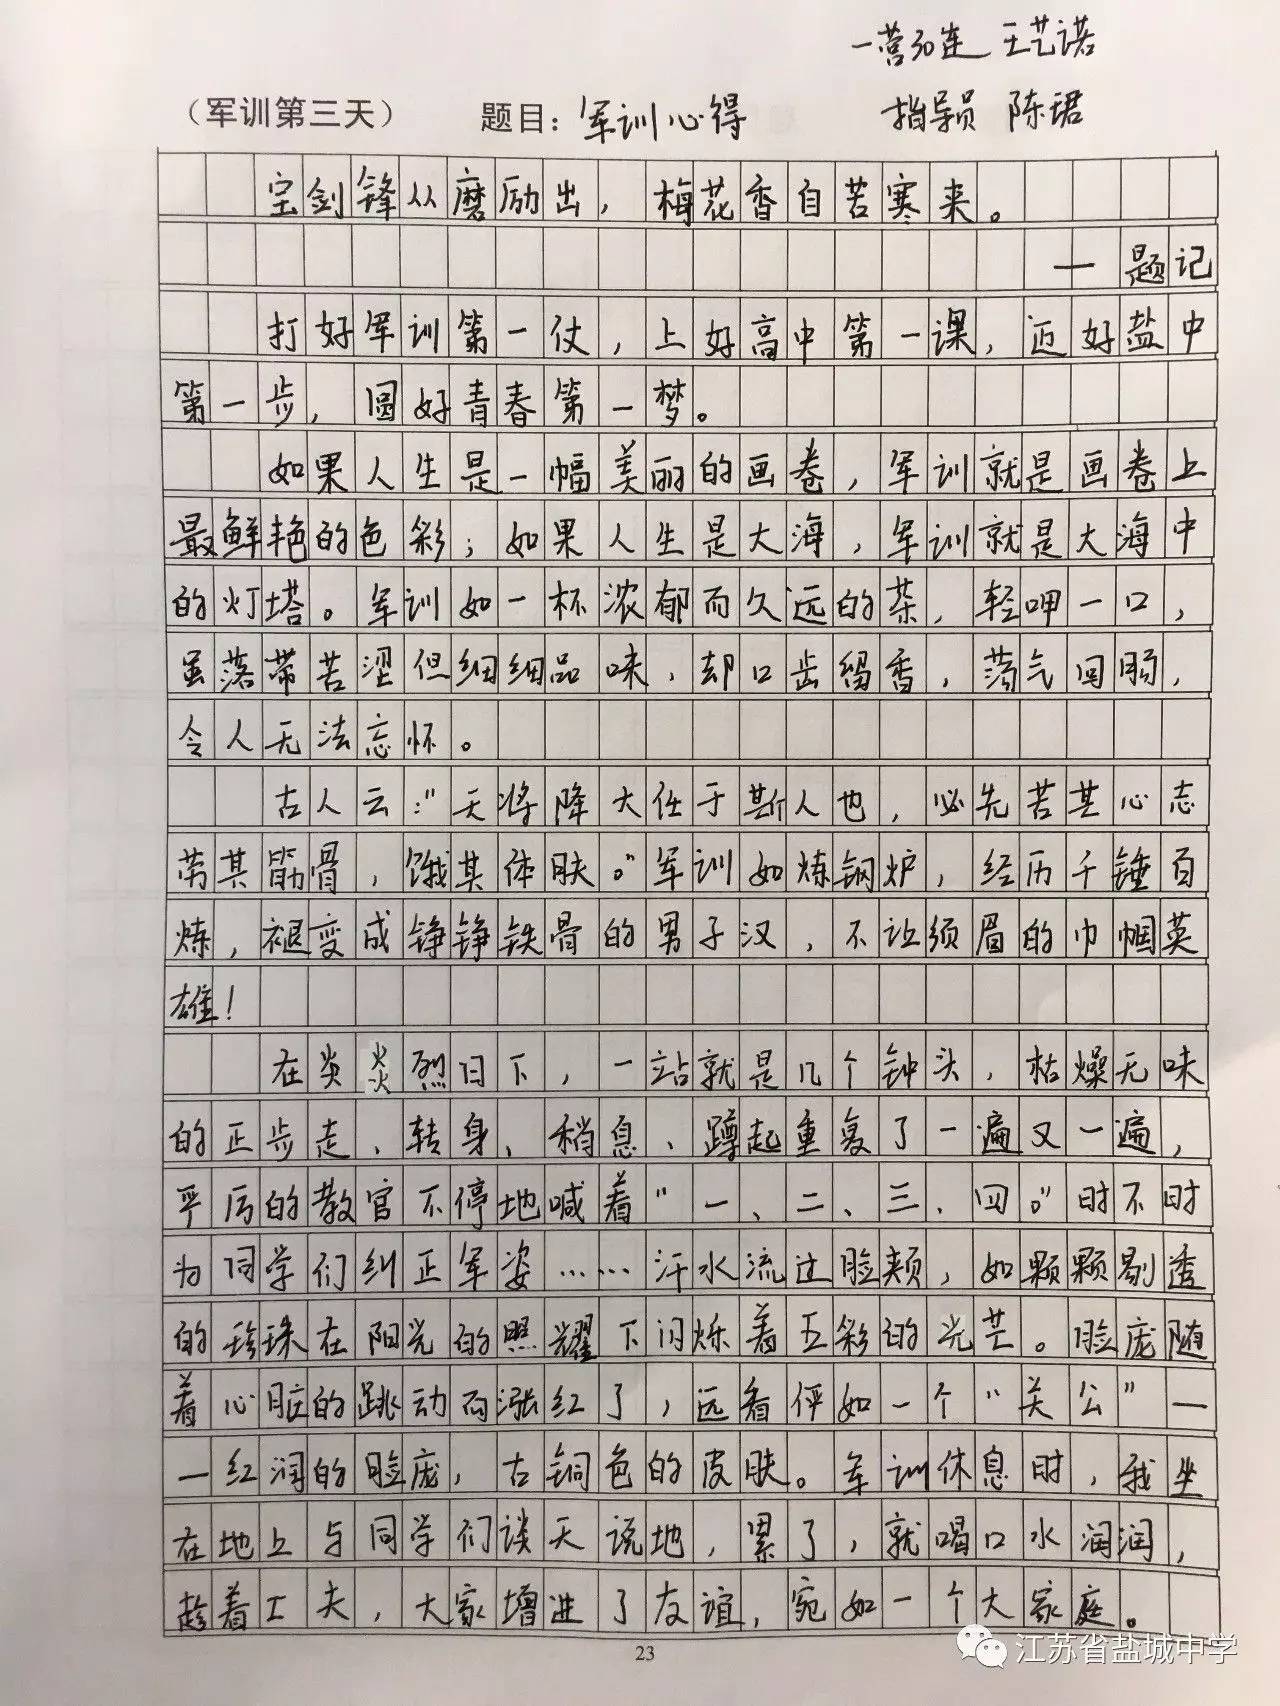 一营30连 王艺诺
（军训第三天） 题目：军训心得 指导员 陈珺
宝剑锋从磨励出，梅花香自苦寒来。
一题记
打好军训第一仗，上好高中第一课，迈好盐中
第一步，圆好青春第一梦。
如果人生是一幅美丽的画卷，军训就是画卷上
最鲜艳的色彩；如果人生是大海，军训就是大海中
的灯塔。军训如一杯浓郁而久远的茶，轻呷一口，
虽落带苦涩但细细品味，却口齿留香，荡气回肠，
令人无法忘怀。
古人云：“天将降大任于斯人也，必先苦其心志
劳其筋骨，饿其体肤。”军训如炼钢炉，经历千锤百
炼，褪变成铮铮铁骨的男子汉，不让须眉的巾帼英
雄！
在炎炎烈日下，一站就是几个钟头，枯燥无味
的正步走、转身、稍息、蹲起重复了一遍又一遍，
严厉的教官不停地喊着“一、二、三、四。”时不时
为同学们纠正军姿……汗水流过脸颊，如颗颗剔透
的珍珠在阳光的照耀下闪烁着五彩的光芒。脸庞随
着心脏的跳动而涨红了，远看俨如一个“关公”—
—红润的脸庞，古铜色的皮肤。军训休息时，我坐
在地上与同学们谈天说地，累了，就喝口水润润，
趁着工夫，大家增进了友谊，宛如一个大家庭。
23
江苏省盐城中学